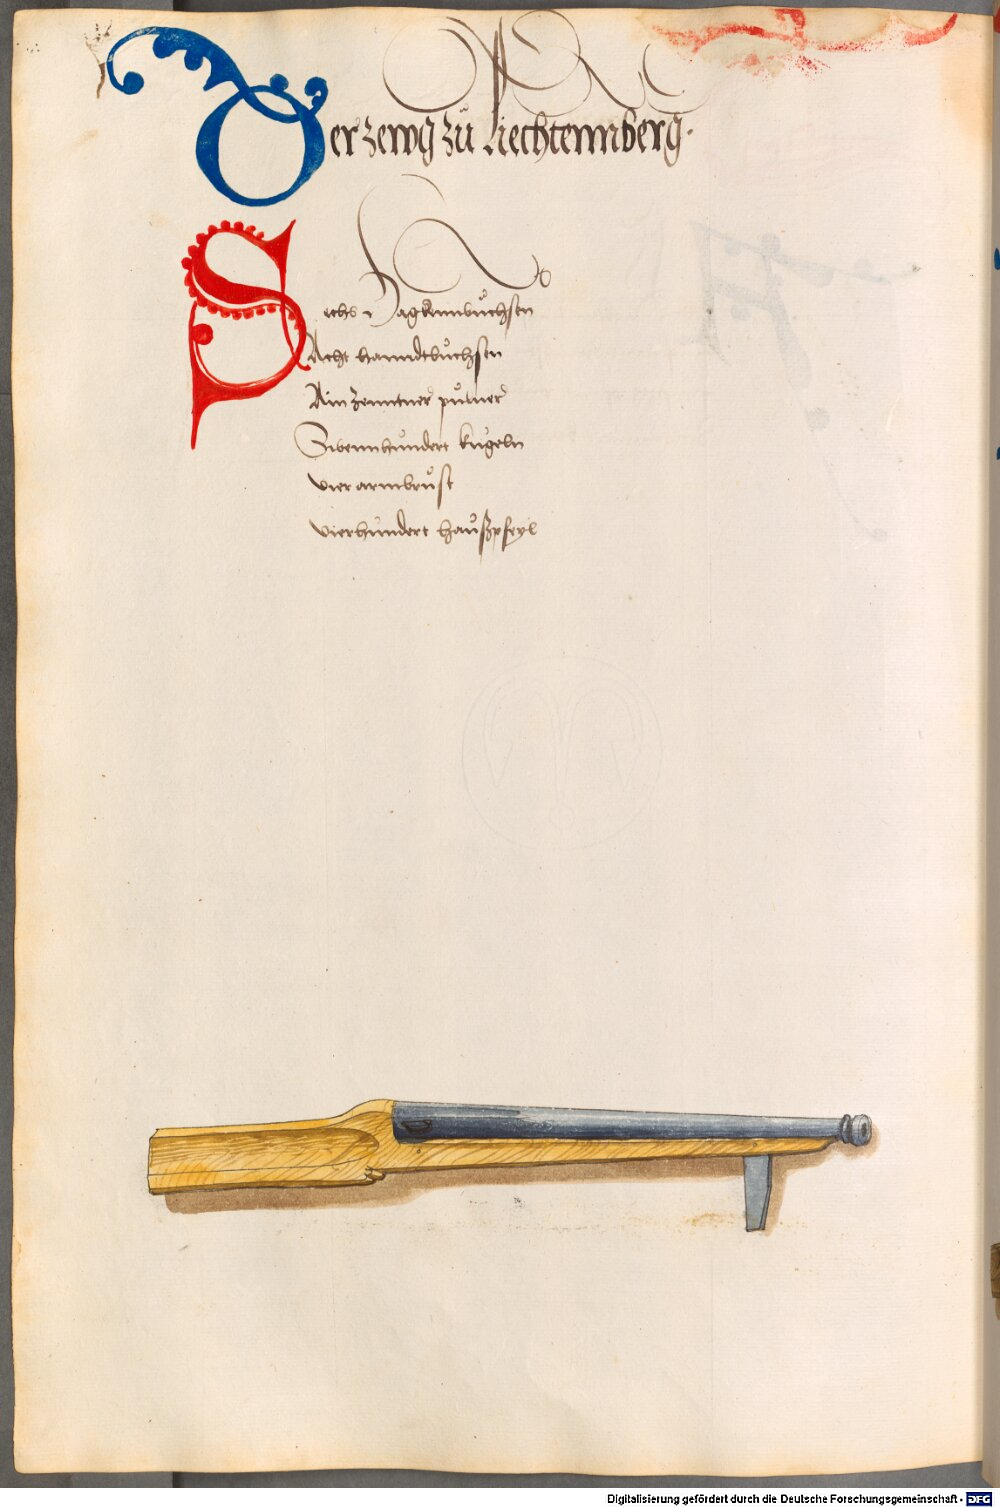 Der zewg zu Liechtennberg.
Sechs Hagkennbůchsen
Acht hanndtbůchsen
Ain Zenntner pulver
Sibennhundert kugeln
vier armbrůst
vierhundert haußpfeyl
Digitalisierung gefördert durch die Deutsche Forschungsgemeinschaft - DFG